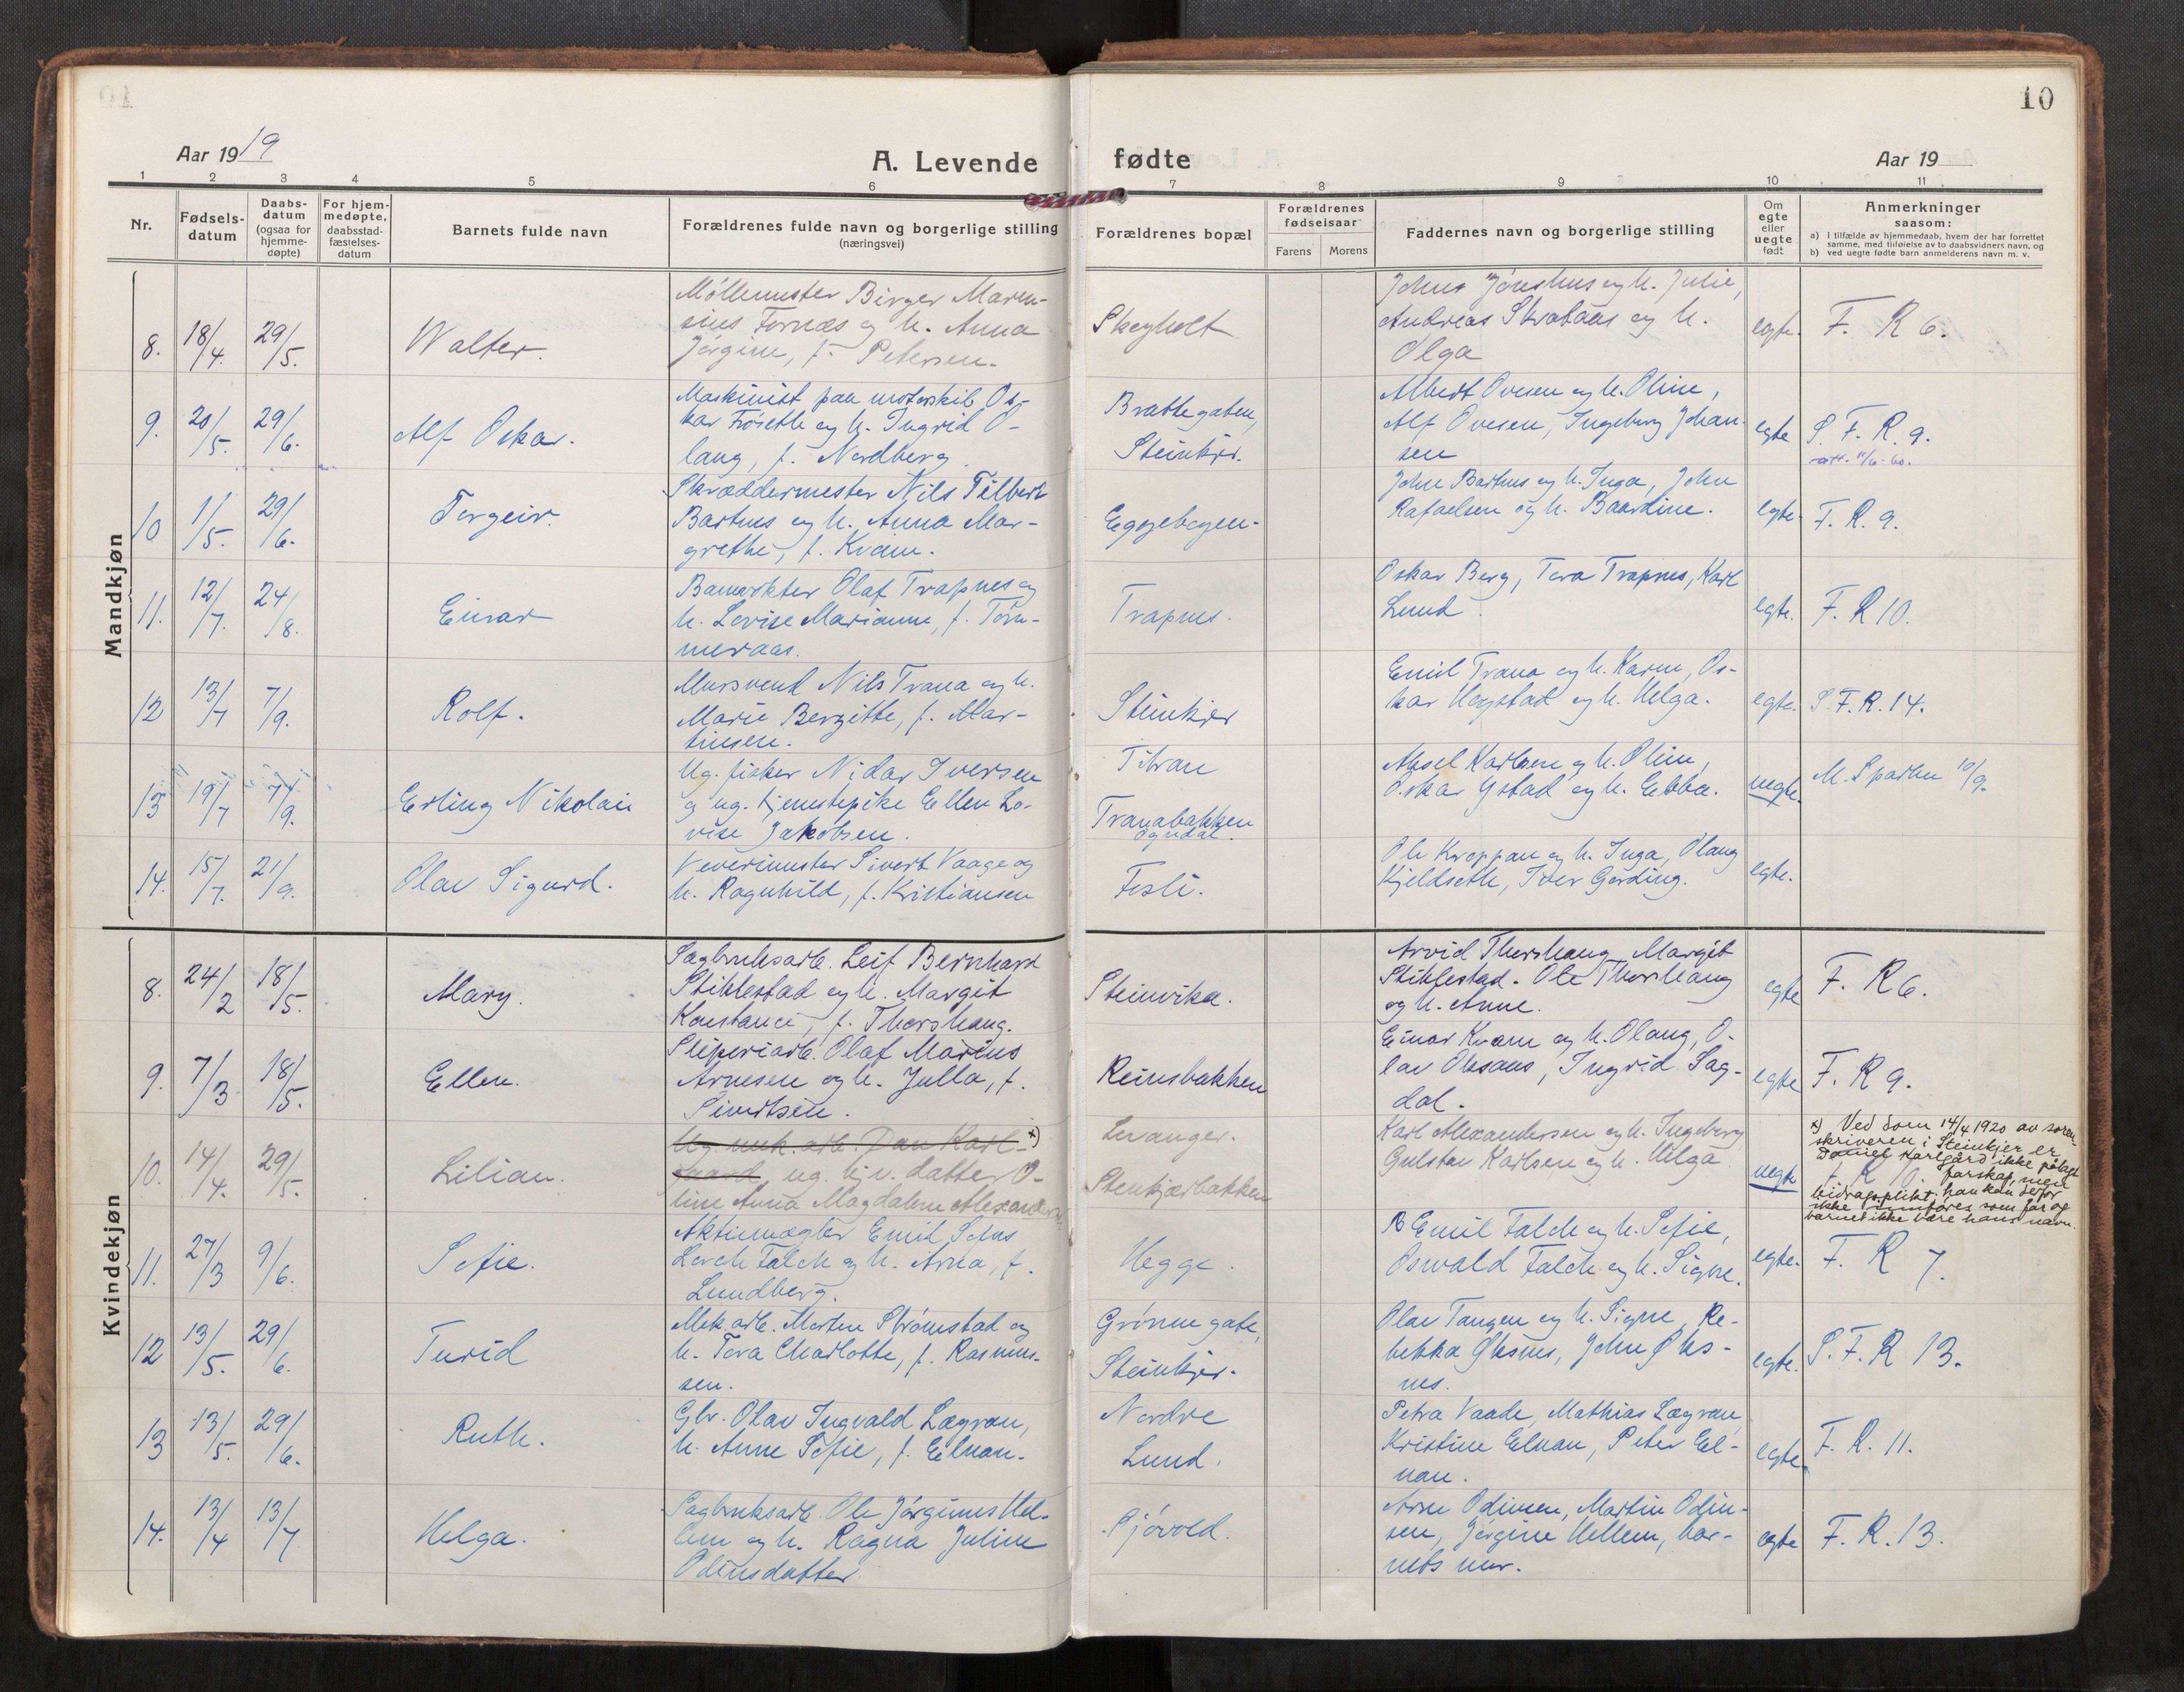 10
Aar 1919
A. Levende fødte
Aar 19
1 2 3 4 5 6 7 8 9 10 11
Nr.
Fødsels-
datum
Daabs-
datum
(ogsaa for
hjemme-
døpte)
For hjem-
medøpte,
daabsstad-
fæstelses-
datum
Barnets fulde navn
Forældrenes fulde navn og borgerlige stilling
(næringsvei)
Forældrenes bopæl
Forældrenes
fødselsaar
Farens Morens
Faddernes navn og borgerlige stilling
Om
egte
eller
uegte
født
Anmerkninger
saasom:
a) i tilfælde av hjemmedaab, hvem der har forrettet
samme, med tilføielse av to daabsvidners navn, og
b) ved uegte fødte barn anmelderens navn m. v.
Mandkjøn
8. 18/4. 29/5. Walter.
Møllemester Birger Maren-
sius Fornæs og h. Anna
Jørgine, f. Petersen.
Skeyholt
Johns Jøreshus og h. Julie,
Andreas Skrataas og h.
Olga
egte. F. R 6.
9. 20/5. 29/6. Alf Oskar.
Maskinist paa motorskib Os-
kar Frøseth og h. Ingrid O-
laug, f. Nordberg
Brattegaten,
Steinkjer.
Albert Ovesen og h. Oline,
Alf Ovesen, Ingeborg Johan-
sen
egte S. F. R. 9.
att. 11/6-60.
10 1/5. 29/6. Torgeir.
Skræddermester Nils Tilbert
Bartnes og h. Anna Mar-
grethe, f. Kvam.
Eggebogen
John Bartnes og h. Inga, John
Rafaelsen og h. Baardine.
egte. F. R. 9.
11. 12/7. 24/8. Einar
Banevokter Olaf Trapnes og
h. Lovise Marianne, f. Tøm-
meraas.
Trapnes.
Oskar Berg, Tora Trapnes, Karl
Lund.
egte. F. R 10.
12 13/7 7/9. Rolf.
Mursvend Nils Trana og h.
Marie Bergitte, f. Mar-
tinsen.
Steinkjer
Emil Trana og h. Karen, Os-
kar Hegstad og h. Helga.
egte. S. F. R. 14.
13 19/7 /9. Erling Nikolai
Ug. fisker Nidar Iversen
og ug. tjenestepike Ellen Lo-
vise Jakobsen.
Titran
Tranabakken
Ogndal.
Aksel Karlsen og h. Oline,
Oskar Ystad og h. Ebba.
uegte. M. Sparbu 10/9.
14. 15/7. 21/9. Olav Sigurd.
Veverimester Sivert Vaage og
h. Ragnhild, f. Kristiansen
Fosli.
Ole Kroppan og h. Inga, Olaug
Kjeldseth, Iver Gørding.
egte.
Kvindekjøn
8. 24/2 18/5. Mary.
Sagbruksarb. Leif Bernhard
Stiklestad og h. Margit
Konstance, f. Thorshaug.
Steinvika.
Arvid Thorshaug, Margit
Stiklestad. Ole Thorshaug
og h. Anne.
egte F. R 6.
9. 7/3 18/5. Ellen.
Sliperiarb. Olaf Marius
Arnesen og h. Julla, f.
Sivertsen.
Reinsbakken
Einar Kvam og h. Olaug, O-
lav Olesaas, Ingrid Sag-
dal.
egte F. R 9.
10. 14/4. 29/5. Lilian.
Ug. mek. arb. Dan Karl- x)
gaard, ug. hjv. datter O-
line Anna Magdalene Alexandersen
Levanger.
Stenkjærbakken
Karl Alexandersen og h. Ingeborg
Gulstav Karlsen og h. Helga.
uegte F. R 6.
x) Ved dom 14/4 1920 av soren-
skriveren i Steinkjer er
Daniel Karlgård ikke pålagt
farskap, men
bidragsplikt; han kan derfor
ikke innføres som far og
barnet ikke bære hans navn.
11. 27/3 9/6. Sofie.
Aktiemægler Emil Sofus
Lorch Falch og h. Arna, f.
Lundberg.
Hegge.
Emil Falch og h. Sofie,
Oswald Falch og h. Signe.
egte. F. R 7.
12 13/5. 29/6. Turid
Mek arb. Morten Strømstad og
h. Tora Charlotte, f. Rasmus-
sen.
Grønnegate,
Steinkjer.
Olav Tangen og h. Signe, Re-
bekka Øksnes, John Øks-
nes.
egte. S. F. R 13.
13 13/5. 29/6. Ruth.
Gbr. Olav Ingvald Lægran,
h. Anne Sofie, f. Elnan.
Nordre
Lund.
Petra Vaade, Mathias Lægran,
Kristine Elnan, Peter El-
nan.
egte F. R. 11.
14. 13/4 13/7 Helga.
Sagbruksarb. Ole Jørginus Hel-
lem og h. Ragna Juline
Odinsdatter
Sjøvold.
Arne Odinsen, Martin Odin-
sen, Jørgine Hellem, bar-
nets mor.
egte F. R. 13.